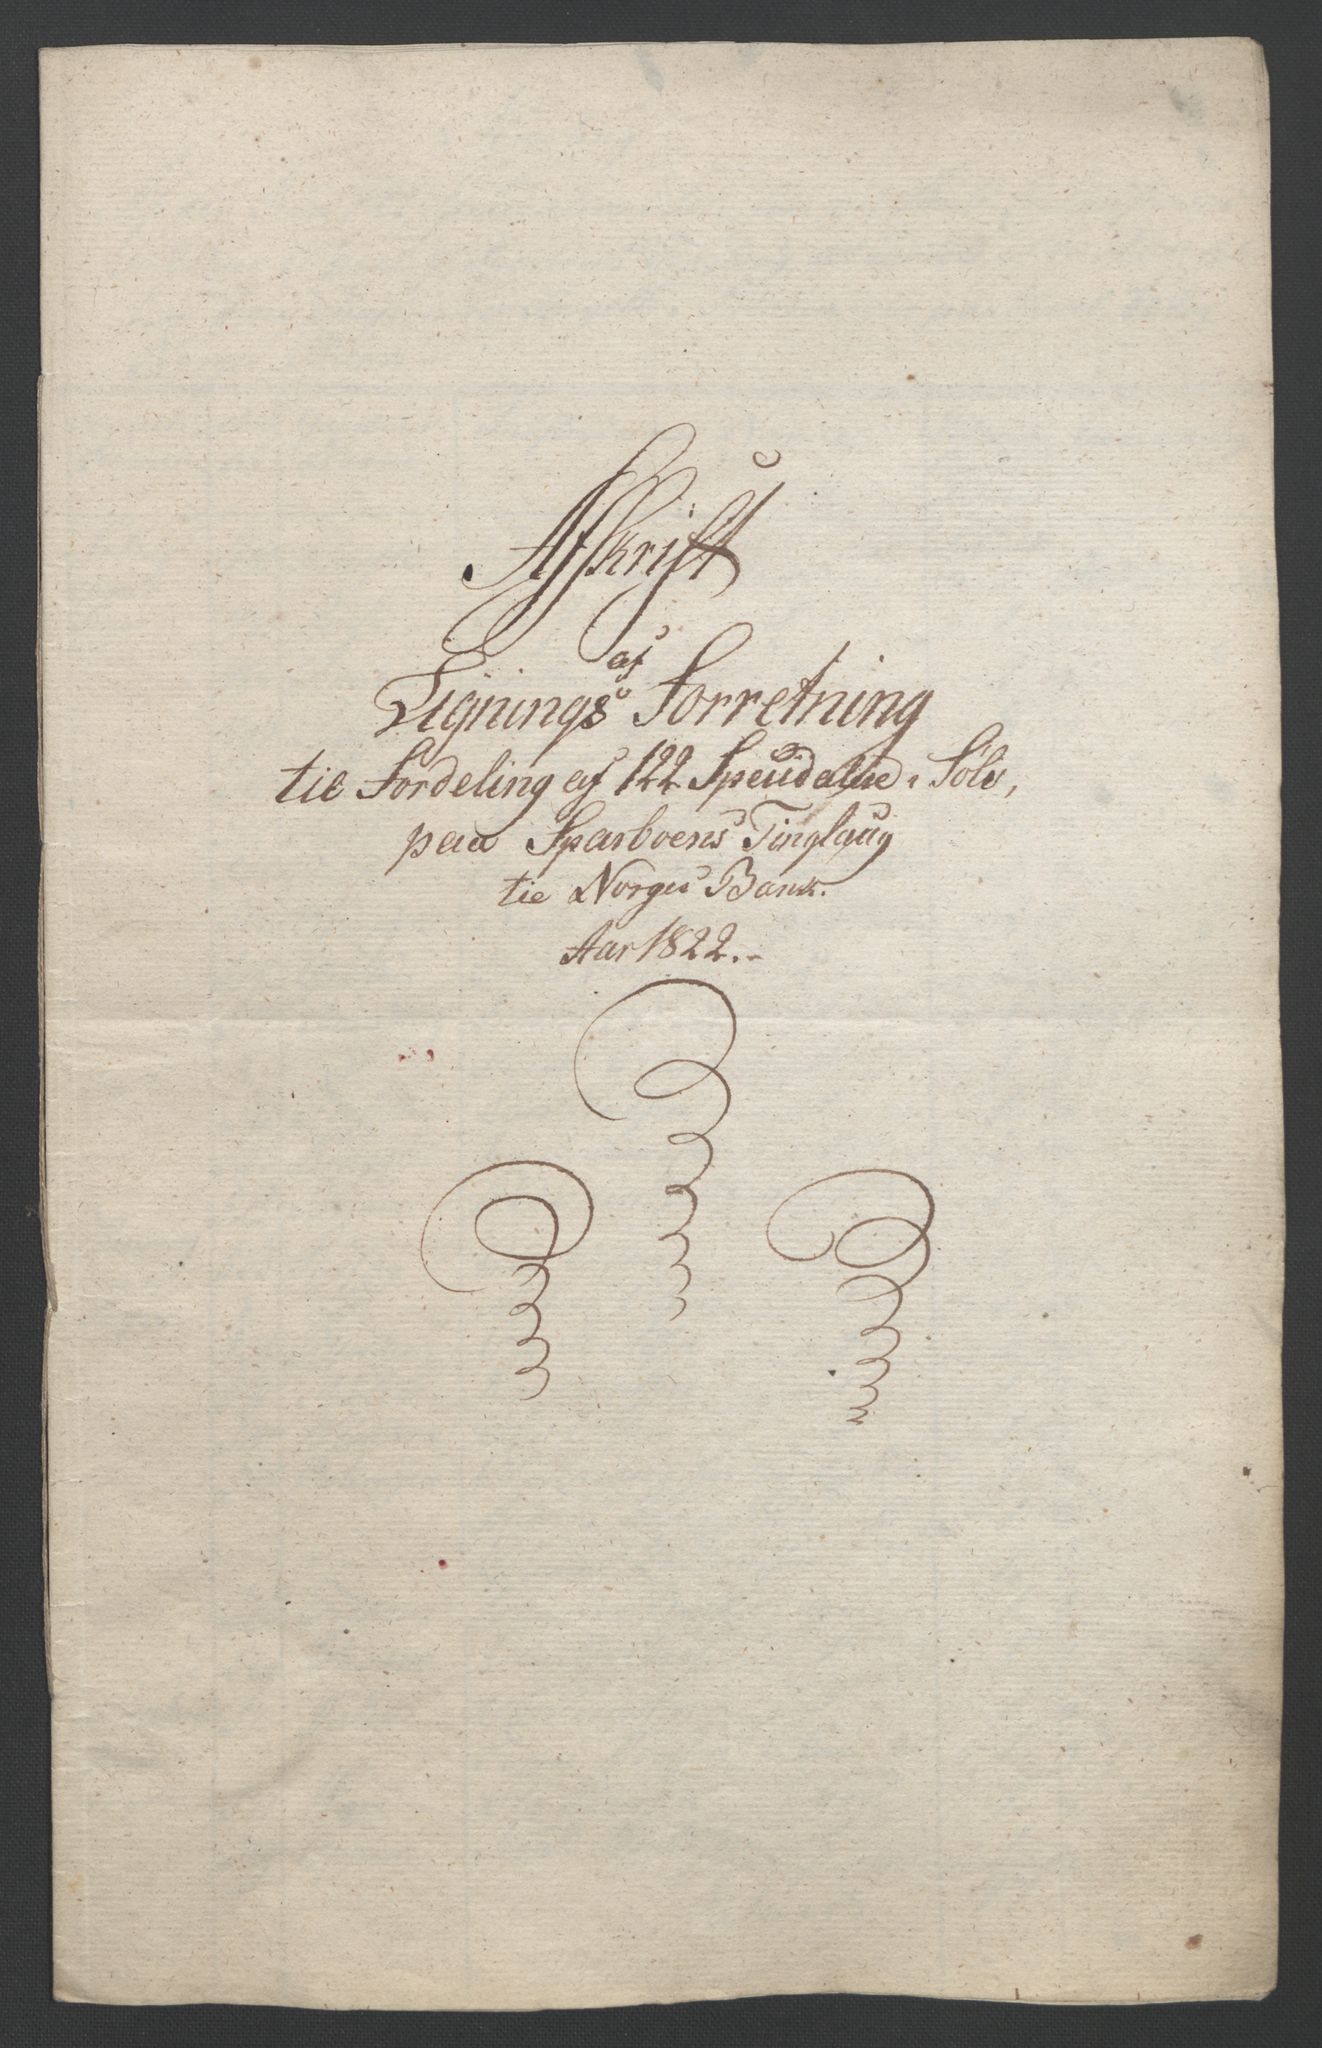 Afskrift
af
Lignings Forretning
til Fordeling af 122 Speciedaler Sølv,
paa Sparboens Tinglaug
til Norges Bank.
Aar 1822.